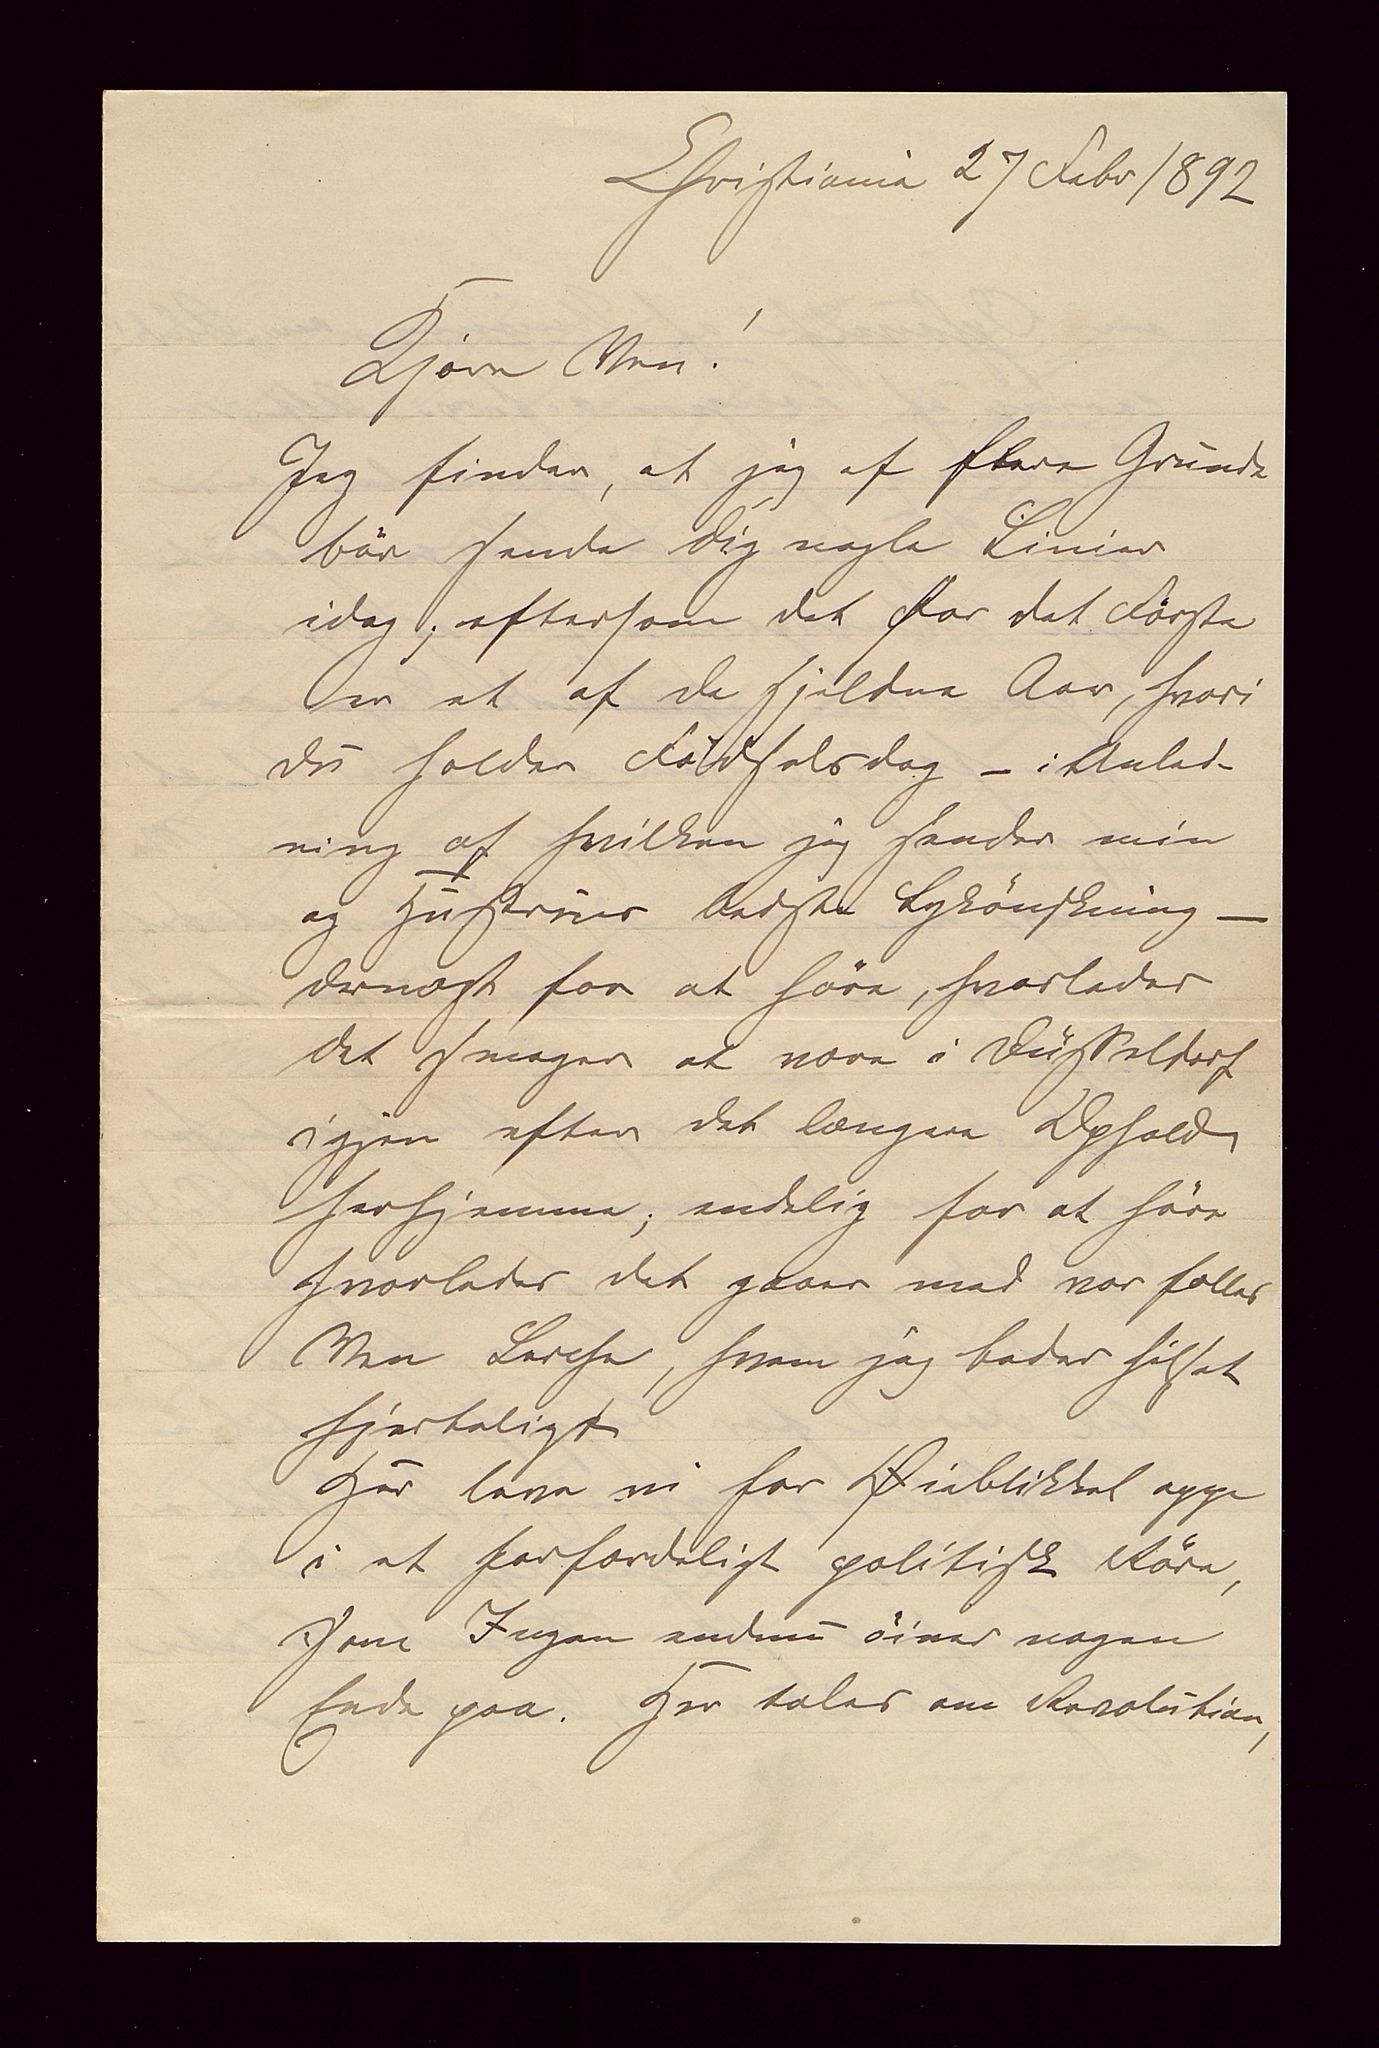 Christiania 27 Febr 1892
Kjære Ven!
Jeg finder, at jeg af flere Grunde
bör sende Dig nogle Linier
idag; eftersom det for det Förste
er et af de sjeldne Aar, hvori
du holder Födselsdag – i Anled-
ning af hvilken jeg sender min
og Hustrues bedste Lykönskning –
dernæst for at höre, hvorledes
det smager at være i Düsseldorf
igjen efter det længere Ophold
herhjemme; endelig for at höre
hvorledes det gaaer med vor fælles
Ven Lerche, hvem jeg beder hilset
hjerteligt
Her leve vi for Øieblikket oppe
i et forfærdeligt politisk Röre,
som Ingen endnu öiner nogen
Ende paa. Her tales om Revolution,